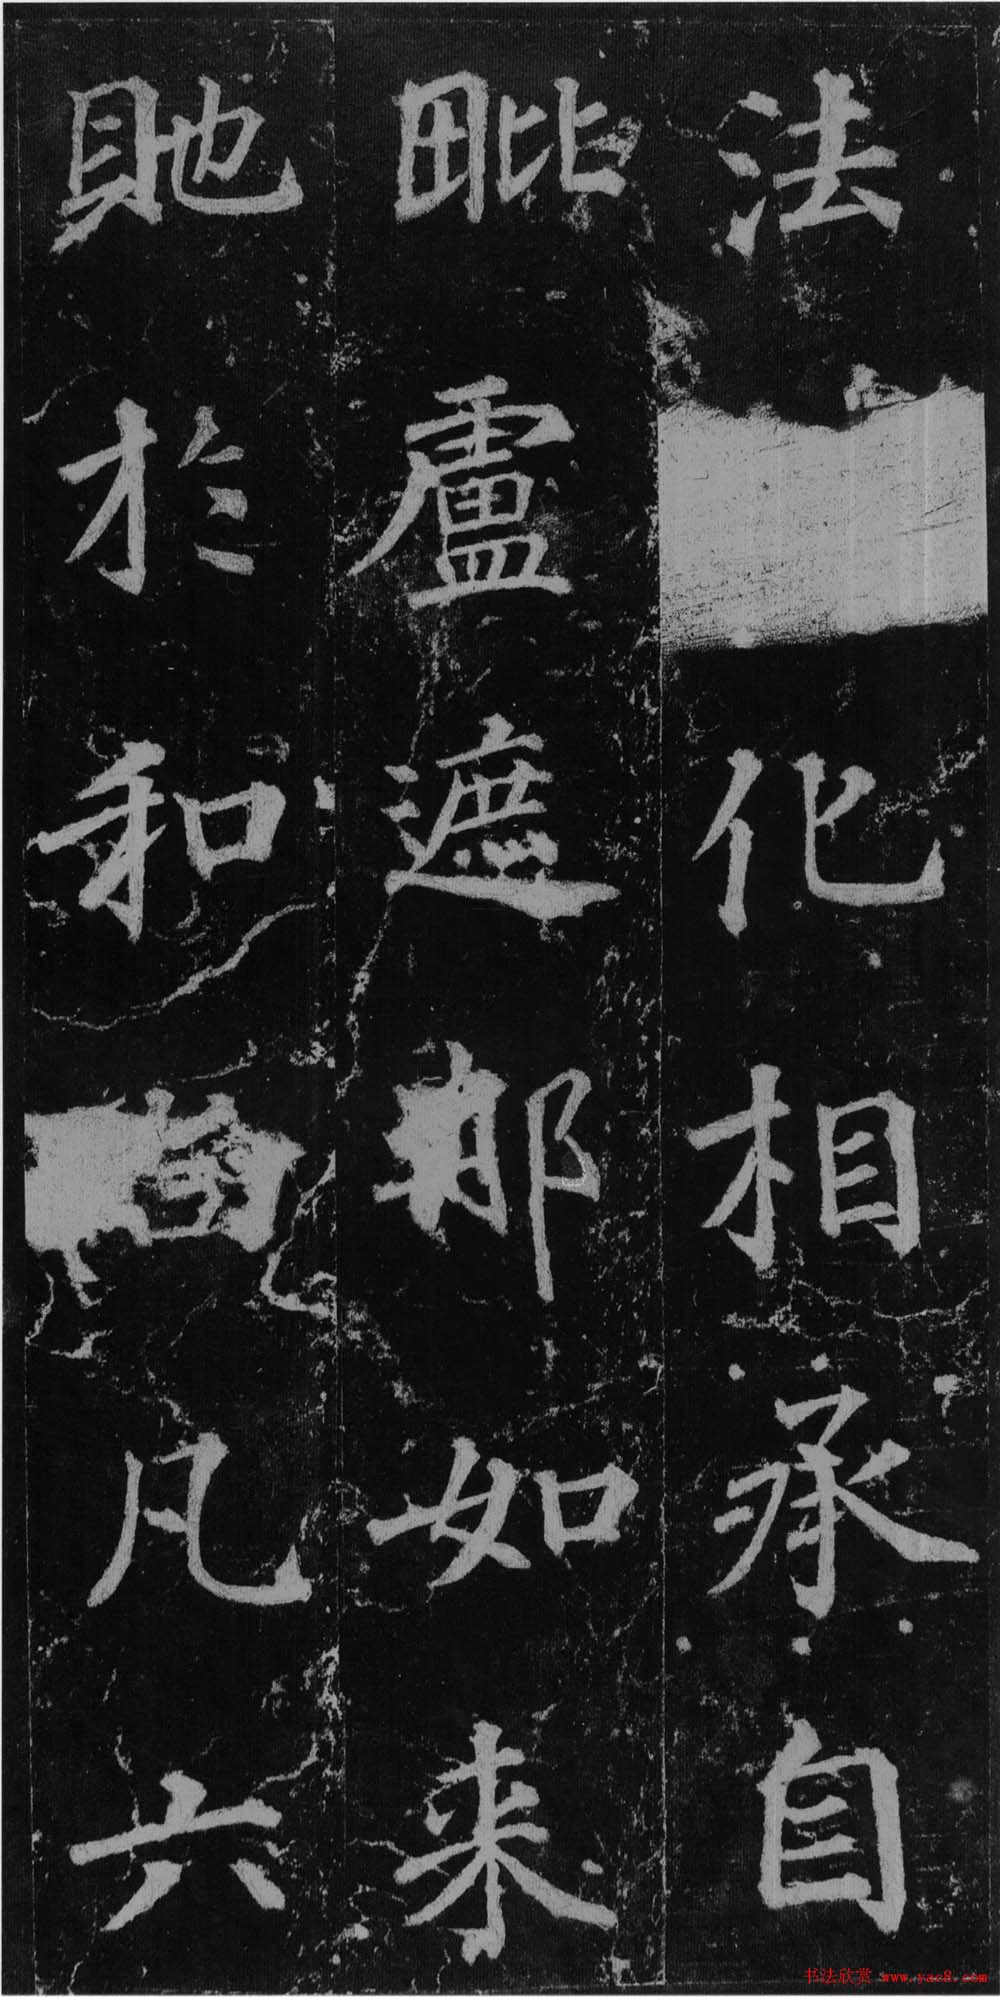 法化相承自
毗盧遮那如来
貤於和尚凡六
书法欣赏 www.yac8.com